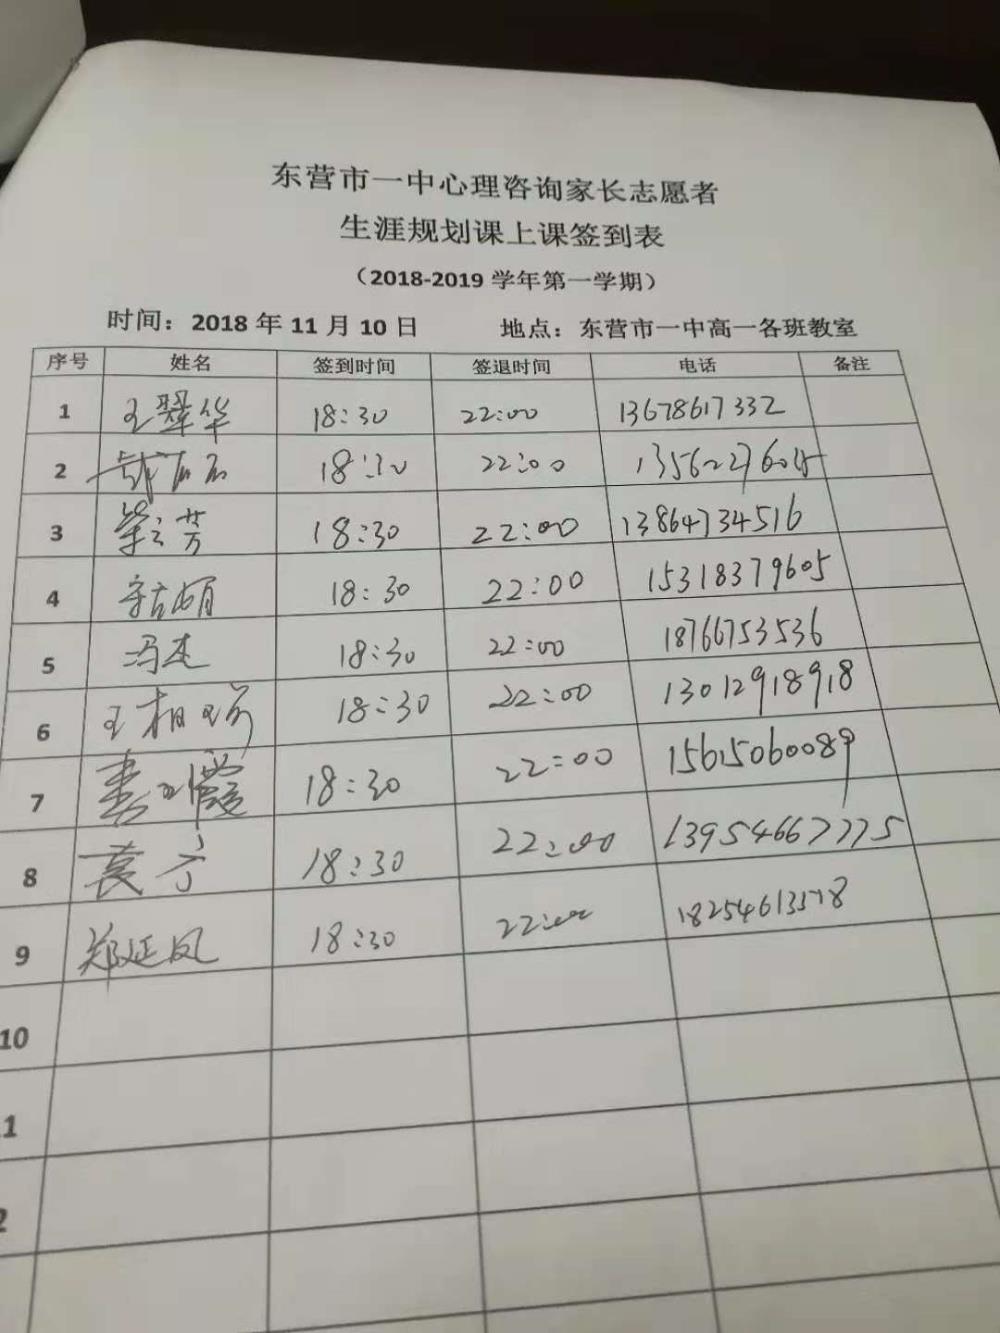 东营市一中心理咨询家长志愿者
生涯规划课上课签到表
（2018-2019 学年第一学期）
时间：2018 年 11 月 10 日 地点：东营市一中高一各班教室
序号 姓名 签到时间 签退时间 电话 备注
1 王翠华 18:30 22:00 13678617332
2 18:30 22:00
3 18:30 22:00 13864734516
4 18:30 22:00 15318379605
5 冯杰 18:30 22:00 18766753536
6 18:30 22:00 13012918918
7 18:30 22:00 15615060089
8 18:30 22:00 13954667775
9 郑延凤 18:30 22:00
10